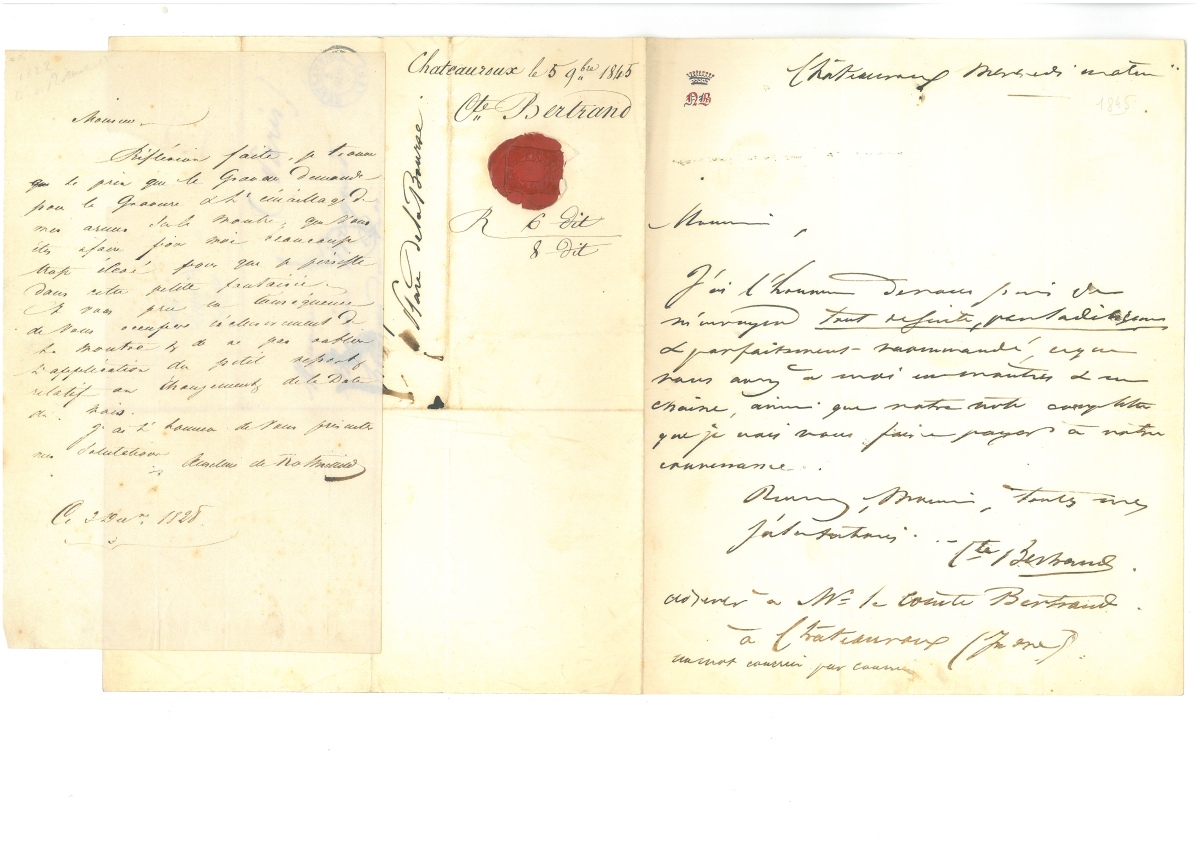 Monsieur
Réflexion faite, je trouve
que le prix que le Graveur demande
pour la Gravure & l'émaillage de
mes armes sur la montre, que vous
êtes à faire pour moi beaucoup
trop élevé pour que je persiste
dans cette petite fantaisie.
Je vous prie en conséquence
de vous occuper
la montre & de ne pas oublier
l'application du petit ressort
relatif au changement de la Date
du mois.
J'ai l'honneur de vous présenter
mes Salutations
de
C. 3 1828.
Chateauroux le 5 9bre 1845
Cte Bertrand
R 6 dit
8 dit
Place de la Bourse
NB
Châteauroux mercredi matin
1845
Monsieur,
J'ai l'honneur de vous prier de
m'envoyer tout de suite, par la diligence
& parfaitement recommandé, ce que
vous avez à moi en montres & en
chaine, ainsi que votre note complète
que je vais vous faire payer à votre
convenance.
Recevez, Monsieur, toutes mes
salutations.
Cte Bertrand
adresser à Mr le Comte Bertrand.
à Châteauroux (Indre)
un mot courrier par courrier